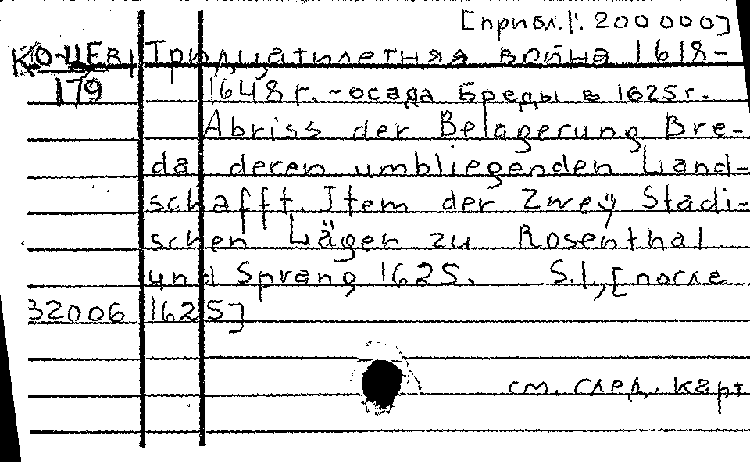 [прибл. 1:200 000]
КО-ЦЕВ1 Тридцатилетняя война 1618-
179 1648 г. - осада Бреды в 1625 г.
Abriss der Belagerung Bre-
da deren umbliegenden Land-
schafft. Item der Zweÿ Stadi-
schen Läger zu Rosenthal
und Sprang 1625. S.l., [после
32006 1625]
см. след. карт